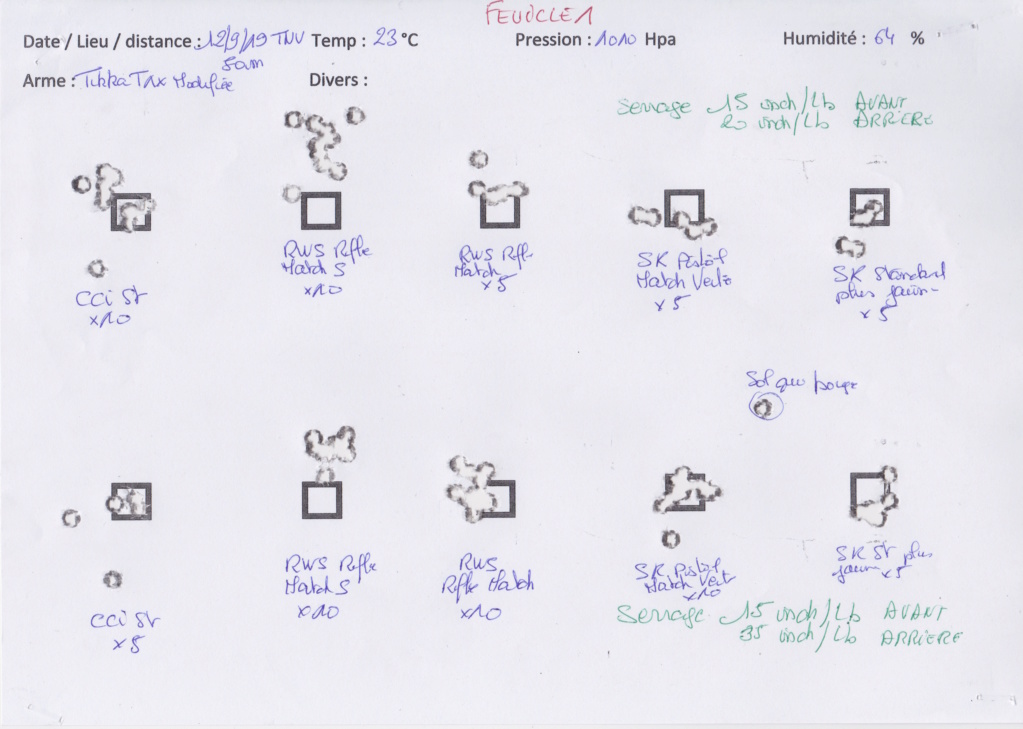 FEUOCLE 1
Date / Lieu / distance : 12/9/19 TNV Temp : 23 °C Pression : 1010 Hpa Humidité : 64 %
50m
Arme : Tikka T1x Modifiée Divers :
Serrage 15 inch/Lb AVANT
20 inch/Lb ARRIERE
CCI St
x10
RWS Rifle
Match S
x10
RWS Rifle
Match
x5
SK Pistol
Match Verte
x5
SK Standard
plus jaune
x5
Sol qui bouge
CCI St
x5
RWS Rifle
Match S
x10
RWS
Rifle Match
x10
SK Pistol
Match Vert
x10
SK St plus
jaune x5
Serrage 15 inch/Lb AVANT
35 inch/Lb ARRIERE